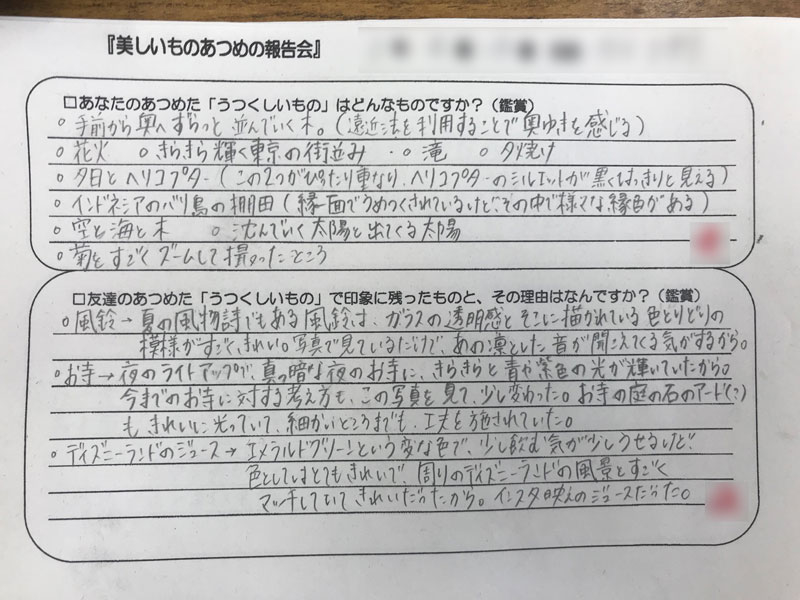 『美しいものあつめの報告会』
□あなたのあつめた「うつくしいもの」はどんなものですか？（鑑賞）
○手前から奥へずらっと並んでいく木。（遠近法を利用することで奥ゆきを感じる）
○花火　○きらきら輝く東京の街並み　・○滝　○夕焼け
○夕日とヘリコプター（この2つがぴったり重なり、ヘリコプターのシルエットが黒くはっきりと見える）
○インドネシアのバリ島の棚田（緑一面でうめつくされているけど、その中で様々な緑色がある）
○空と海と木　○沈んでいく太陽と出てくる太陽
○菊をすごくズームして撮ったところ
□友達のあつめた「うつくしいもの」で印象に残ったものと、その理由はなんですか？（鑑賞）
○風鈴→夏の風物詩でもある風鈴は、ガラスの透明感とそこに描かれている色とりどりの
模様がすごくきれい。写真で見ているだけで、あの凛とした音が聞こえてくる気がするから。
○お寺→夜のライトアップで、真っ暗な夜のお寺に、きらきらと青や紫色の光が輝いていたから。
今までのお寺に対する考え方も、この写真を見て、少し変わった。お寺の庭の石のアート(?)
もきれいに光っていて、細かいところまでも、工夫を施されていた。
○ディズニーランドのジュース→エメラルドグリーンという変な色で、少し飲む気が少しうせるけど、
色としてはとてもきれいで、周りのディズニーランドの風景とすごく
マッチしていてきれいだったから。インスタ映えのジュースだった。